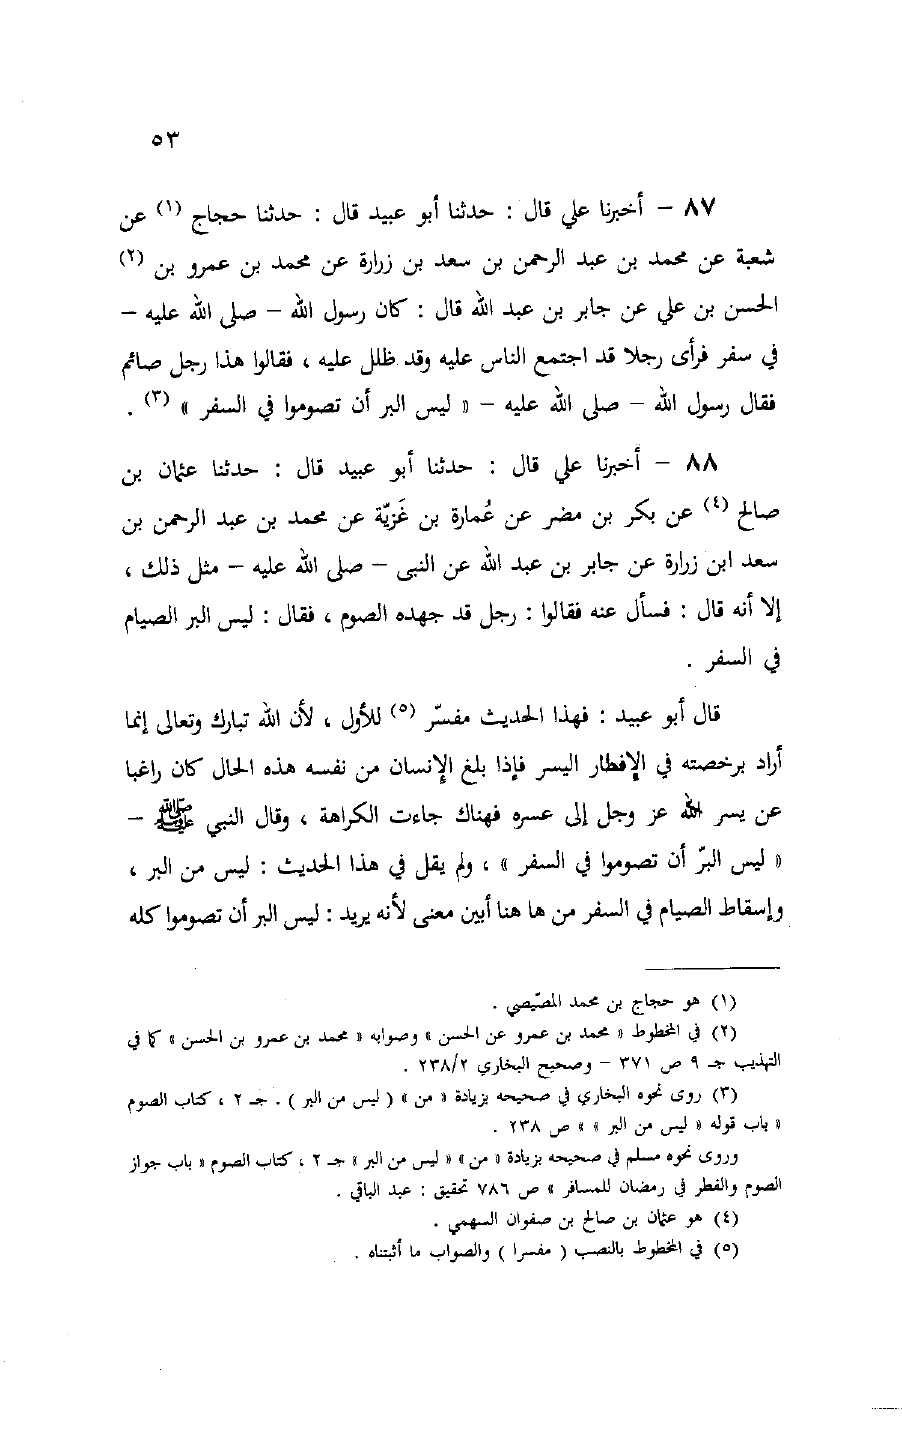 ٥٣
٨٧ – أخبرنا علي قال : حدثنا أبو عبيد قال : حدثنا حجاج (١) عن
شعبة عن محمد بن عبد الرحمن بن سعد بن زرارة عن محمد بن عمرو بن (٢)
الحسن بن علي عن جابر بن عبد الله قال : كان رسول الله – صلى الله عليه –
في سفر فرأى رجلا قد اجتمع الناس عليه وقد ظلل عليه ، فقالوا هذا رجل صائم
فقال رسول الله – صلى الله عليه – « ليس البر أن تصوموا في السفر » (٣) .
٨٨ – أخبرنا علي قال : حدثنا أبو عبيد قال : حدثنا عثمان بن
صالح (٤) عن بكر بن مضر عن عُمارة بن غَزِيّة عن محمد بن عبد الرحمن بن
سعد ابن زرارة عن جابر بن عبد الله عن النبى – صلى الله عليه – مثل ذلك ،
إلا أنه قال : فسأل عنه فقالوا : رجل قد جهده الصوم ، فقال : ليس البر الصيام
في السفر .
قال أبو عبيد : فهذا الحديث مفسّر (٥) للأول ، لأن الله تبارك وتعالى إنما
أراد برخصته في الإفطار اليسر فإذا بلغ الإنسان من نفسه هذه الحال كان راغبا
عن يسر الله عز وجل إلى عسره فهناك جاءت الكراهة ، وقال النبي ﷺ –
« ليس البرّ أن تصوموا في السفر » ، ولم يقل في هذا الحديث : ليس من البر ،
وإسقاط الصيام في السفر من ها هنا أبين معنى لأنه يريد : ليس البر أن تصوموا كله
(١) هو حجاج بن محمد المصّيصي .
(٢) في المخطوط « محمد بن عمرو عن الحسن » وصوابه « محمد بن عمرو بن الحسن » كما في
التهذيب جـ ٩ ص ٣٧١ – وصحيح البخاري ٢٣٨/٢ .
(٣) روى نحوه البخاري في صحيحه بزيادة « من » ( ليس من البر ) . جـ ٢ ، كتاب الصوم
« باب قوله « ليس من البر » » ص ٢٣٨ .
وروى نحوه مسلم في صحيحه بزيادة « من » « ليس من البر » جـ ٢ ، كتاب الصوم « باب جواز
الصوم والفطر في رمضان للمسافر » ص ٧٨٦ تحقيق : عبد الباقي .
(٤) هو عثمان بن صالح بن صفوان السهمي .
(٥) في المخطوط بالنصب ( مفسرا ) والصواب ما أثبتناه .